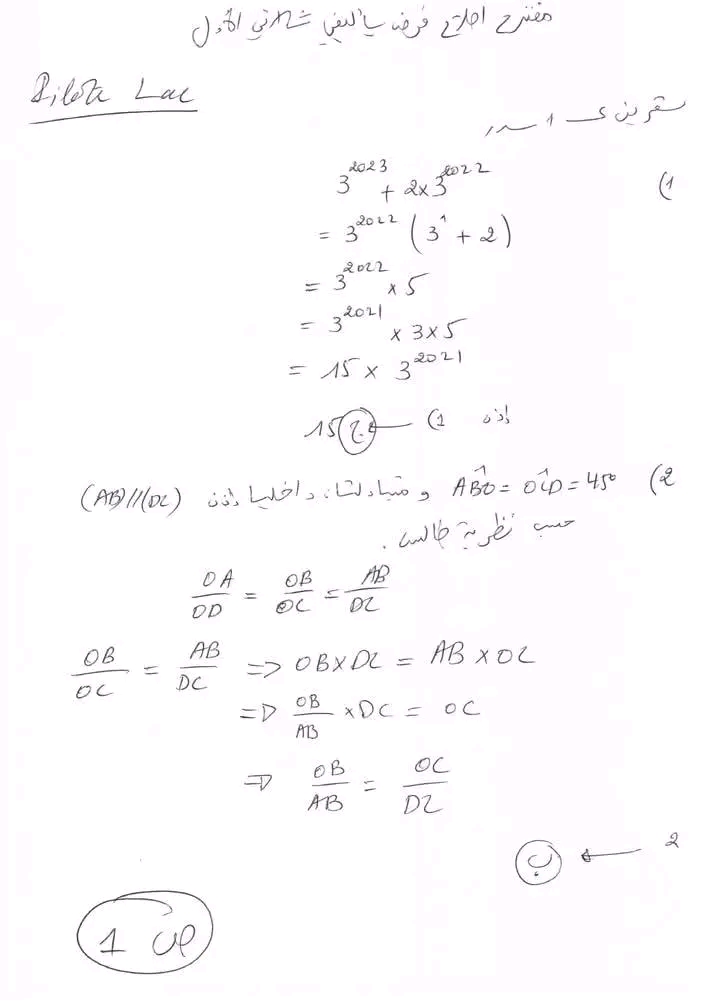 مقترح اصلاح فرض تأليفي ثلاثي الأول
Pilote Lac
تمرين عـ 1 ـدد
1) 3^2023 + 2x3^2022
= 3^2022 (3^1 + 2)
= 3^2022 x 5
= 3^2021 x 3 x 5
= 15 x 3^2021
اذن 1) ← ج) 15
2) ABO = OCD = 45° و متبادلتان داخليا إذن (AB)//(DC)
حسب نظرية طالس.
OA/OD = OB/OC = AB/DC
OB/OC = AB/DC => OB x DC = AB x OC
=> OB/AB x DC = OC
=> OB/AB = OC/DC
2 ← ب
ص 1